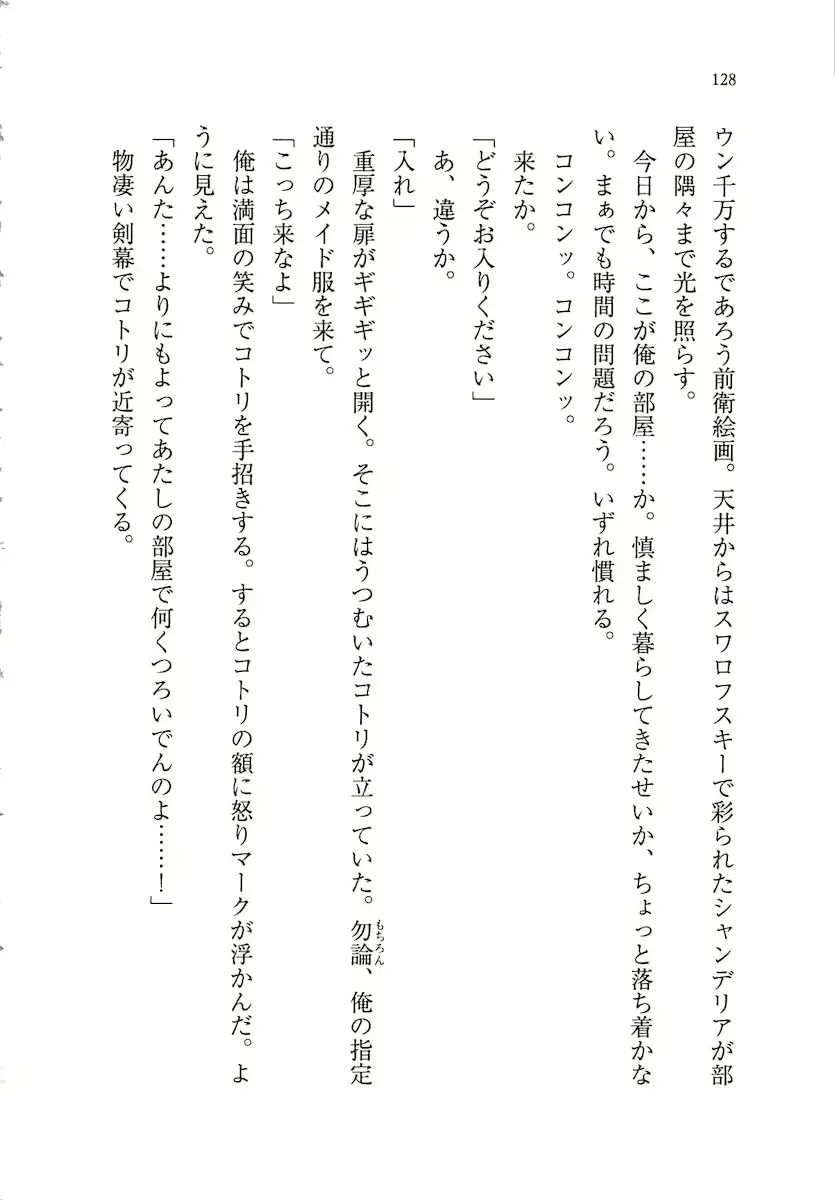 128
ウン千万するであろう前衛絵画。天井からはスワロフスキーで彩られたシャンデリアが部
屋の隅々まで光を照らす。
今日から、ここが俺の部屋……か。慎ましく暮らしてきたせいか、ちょっと落ち着かな
い。まぁでも時間の問題だろう。いずれ慣れる。
コンコンッ。コンコンッ。
来たか。
「どうぞお入りください」
あ、違うか。
「入れ」
重厚な扉がギギギッと開く。そこにはうつむいたコトリが立っていた。勿論、俺の指定
もちろん
通りのメイド服を来て。
「こっち来なよ」
俺は満面の笑みでコトリを手招きする。するとコトリの額に怒りマークが浮かんだ。よ
うに見えた。
「あんた……よりにもよってあたしの部屋で何くつろいでんのよ……！」
物凄い剣幕でコトリが近寄ってくる。